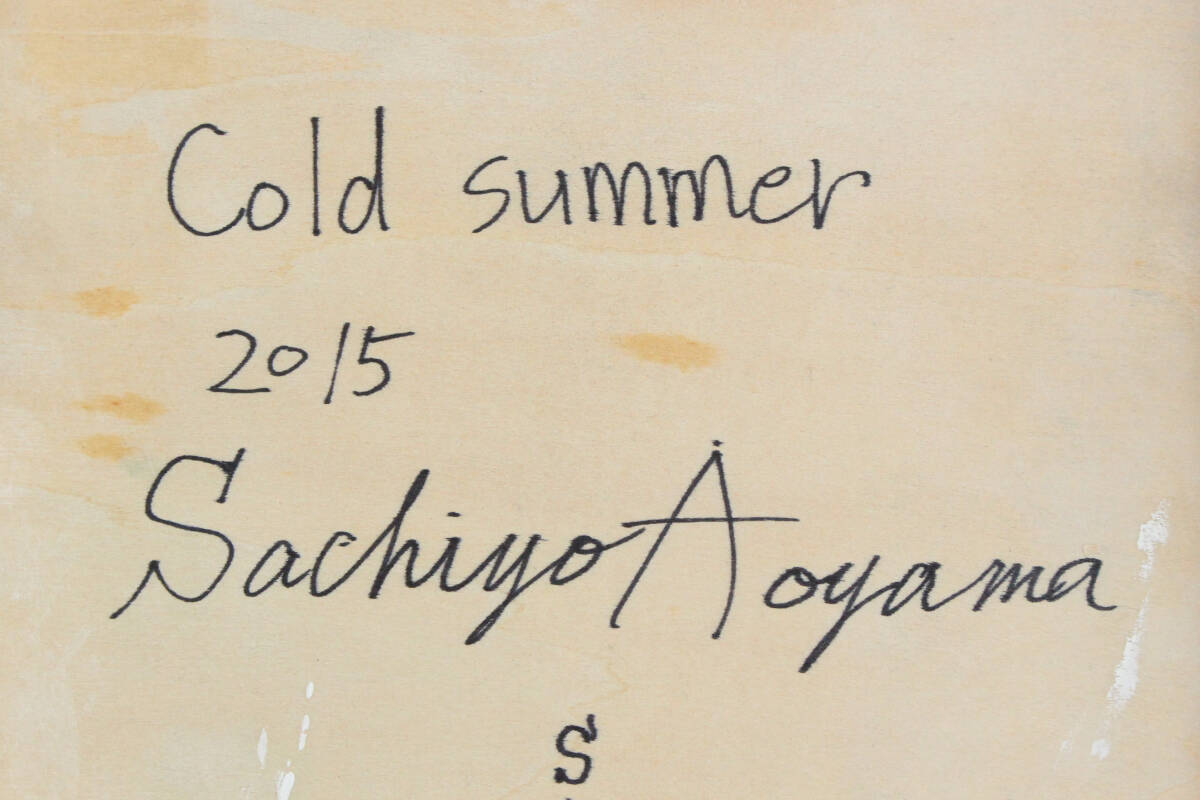 Cold summer
2015
Sachiyo Aoyama
S